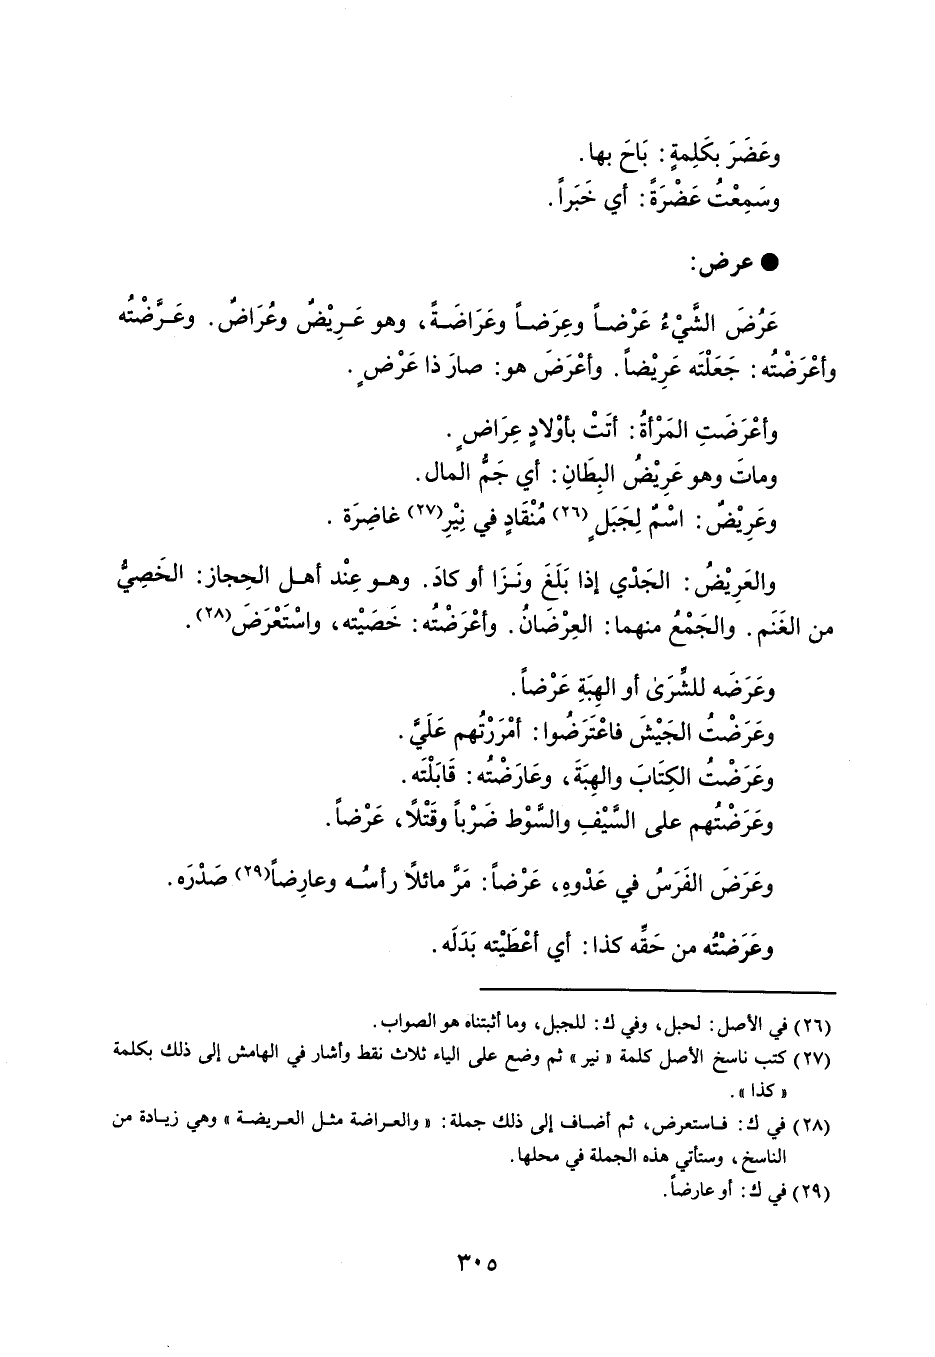 وعَضَرَ بكَلِمةٍ: بَاحَ بها.
وسَمِعْتُ عَضْرَةً: أي خَبَراً.
● عرض:
عَرُضَ الشَّيْءُ عَرْضاً وعِرَضاً وعَرَاضَةً، وهو عَرِيْضٌ وعُرَاضٌ. وعَرَّضْتُه
وأعْرَضْتُه: جَعَلْتَه عَرِيْضاً. وأعْرَضَ هو: صارَ ذا عَرْضٍ.
وأعْرَضَتِ المَرْأةُ: أتَتْ بأوْلادٍ عِرَاضٍ.
وماتَ وهو عَرِيْضُ البِطَانِ: أي جَمُّ المال.
وعَرِيْضٌ: اسْمٌ لِجَبَلٍ(٢٦) مُنْقَادٍ في نِيْرِ(٢٧) غاضِرَة.
والعَرِيْضُ: الجَدْي إذا بَلَغَ ونَزَا أو كادَ. وهو عِنْد أهل الحِجاز: الخَصِيُّ
من الغَنَم. والجَمْعُ منهما: العِرْضَانُ. وأعْرَضْتُه: خَصَيْته، واسْتَعْرَضَ(٢٨).
وعَرَضَه للشِّرَىٰ أو الهِبَةِ عَرْضاً.
وعَرَضْتُ الجَيْشَ فاعْتَرَضُوا: أمْرَرْتُهم عَلَيَّ.
وعَرَضْتُ الكِتَابَ والهِبَةَ، وعَارَضْتُه: قَابَلْتَه.
وعَرَضْتُهم على السَّيْفِ والسَّوْط ضَرْباً وقَتْلًا، عَرْضاً.
وعَرَضَ الفَرَسُ في عَدْوِهِ، عَرْضاً: مَرَّ مائلًا رأسُه وعارِضاً(٢٩) صَدْرَه.
وعَرَضْتُه من حَقِّه كذا: أي أعْطَيْته بَدَلَه.
(٢٦) في الأصل: لحبل، وفي ك: للجبل، وما أثبتناه هو الصواب.
(٢٧) كتب ناسخ الأصل كلمة «نير» ثم وضع على الياء ثلاث نقط وأشار في الهامش إلى ذلك بكلمة
«كذا».
(٢٨) في ك: فاستعرض، ثم أضاف إلى ذلك جملة: «والعراضة مثل العريضة» وهي زيادة من
الناسخ، وستأتي هذه الجملة في محلها.
(٢٩) في ك: أو عارضاً.
٣٠٥